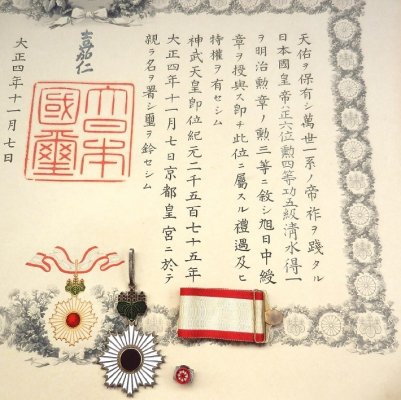 天佑ヲ保有シ萬世一系ノ帝祚ヲ踐タル
日本國皇帝ハ正六位勲四等功五級清水得一
ヲ明治勲章ノ勲三等ニ敘シ旭日中綬
章ヲ授與ス即チ此位ニ屬スル禮遇及ヒ
特權ヲ有セシム
神武天皇即位紀元二千五百七十五年
大正四年十一月七日京都皇宮ニ於テ
親ラ名ヲ署シ璽ヲ鈐セシム
嘉仁
大日本
國璽
大正四年十一月七日